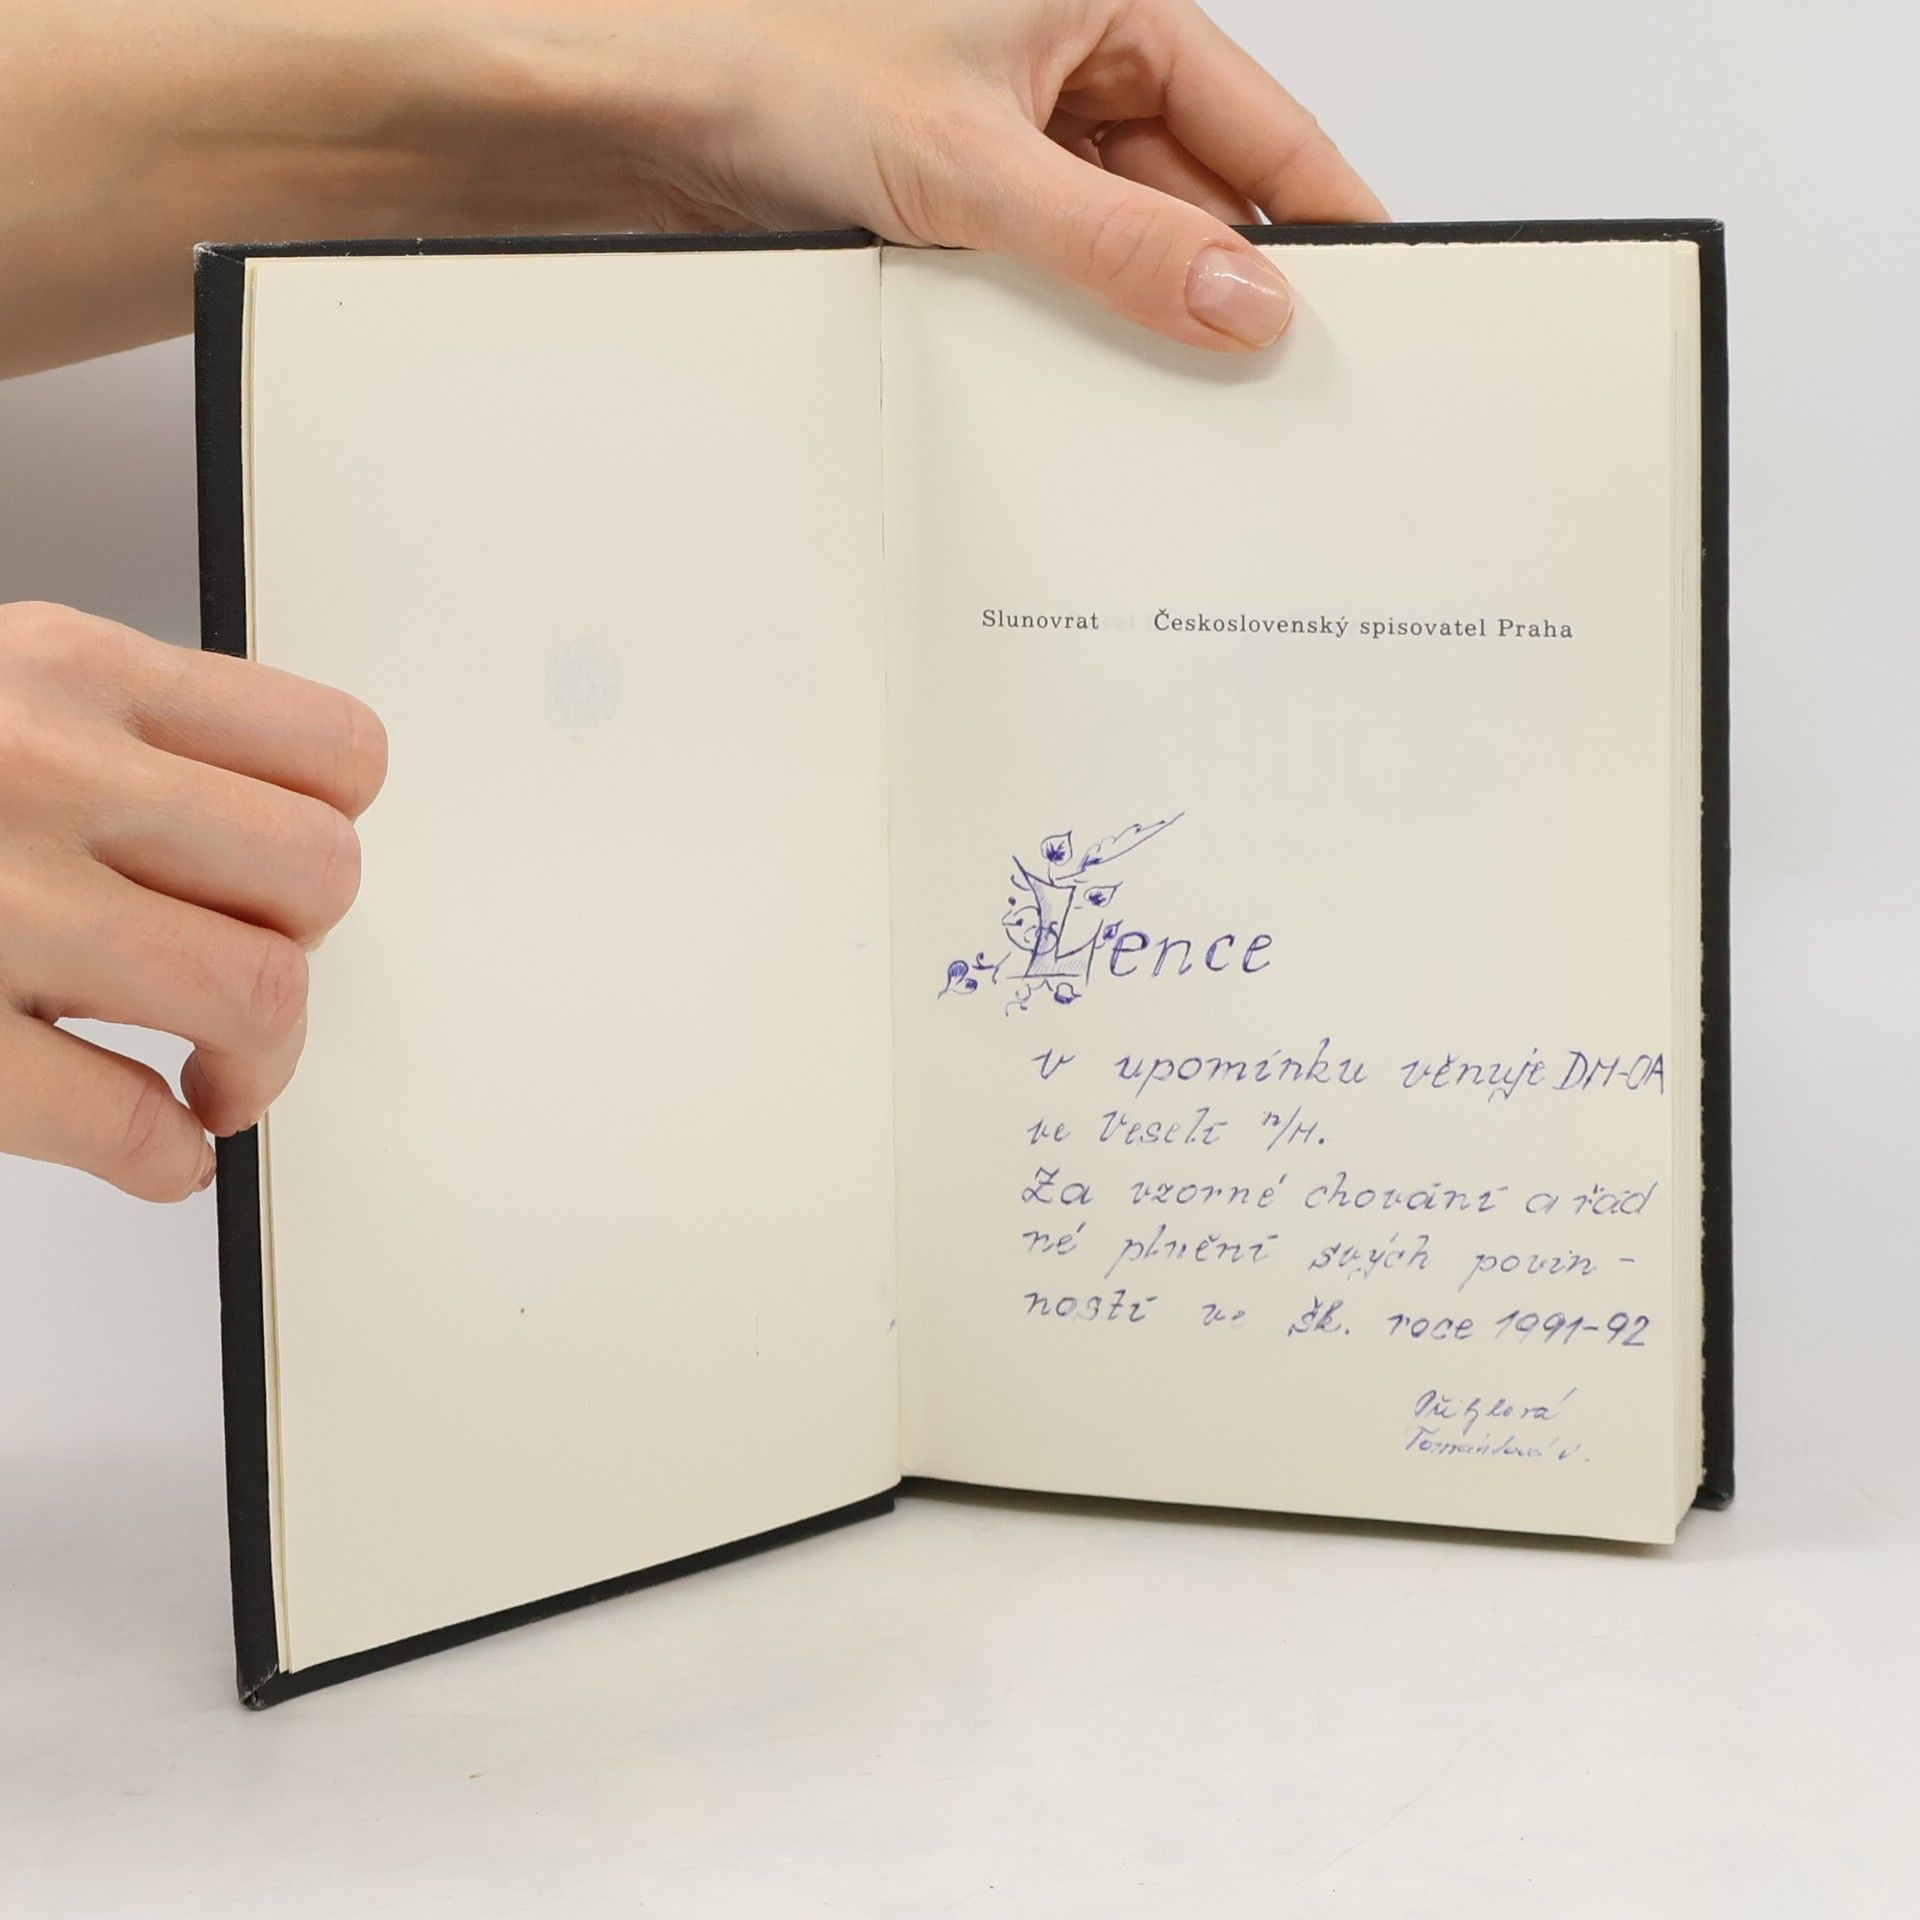 Slunovrat Československý spisovatel Praha
Lence
v upomínku věnuje DM-OA
ve Veselí n/M.
Za vzorné chování a řád
né plnění svých povin-
ností ve šk. roce 1991-92